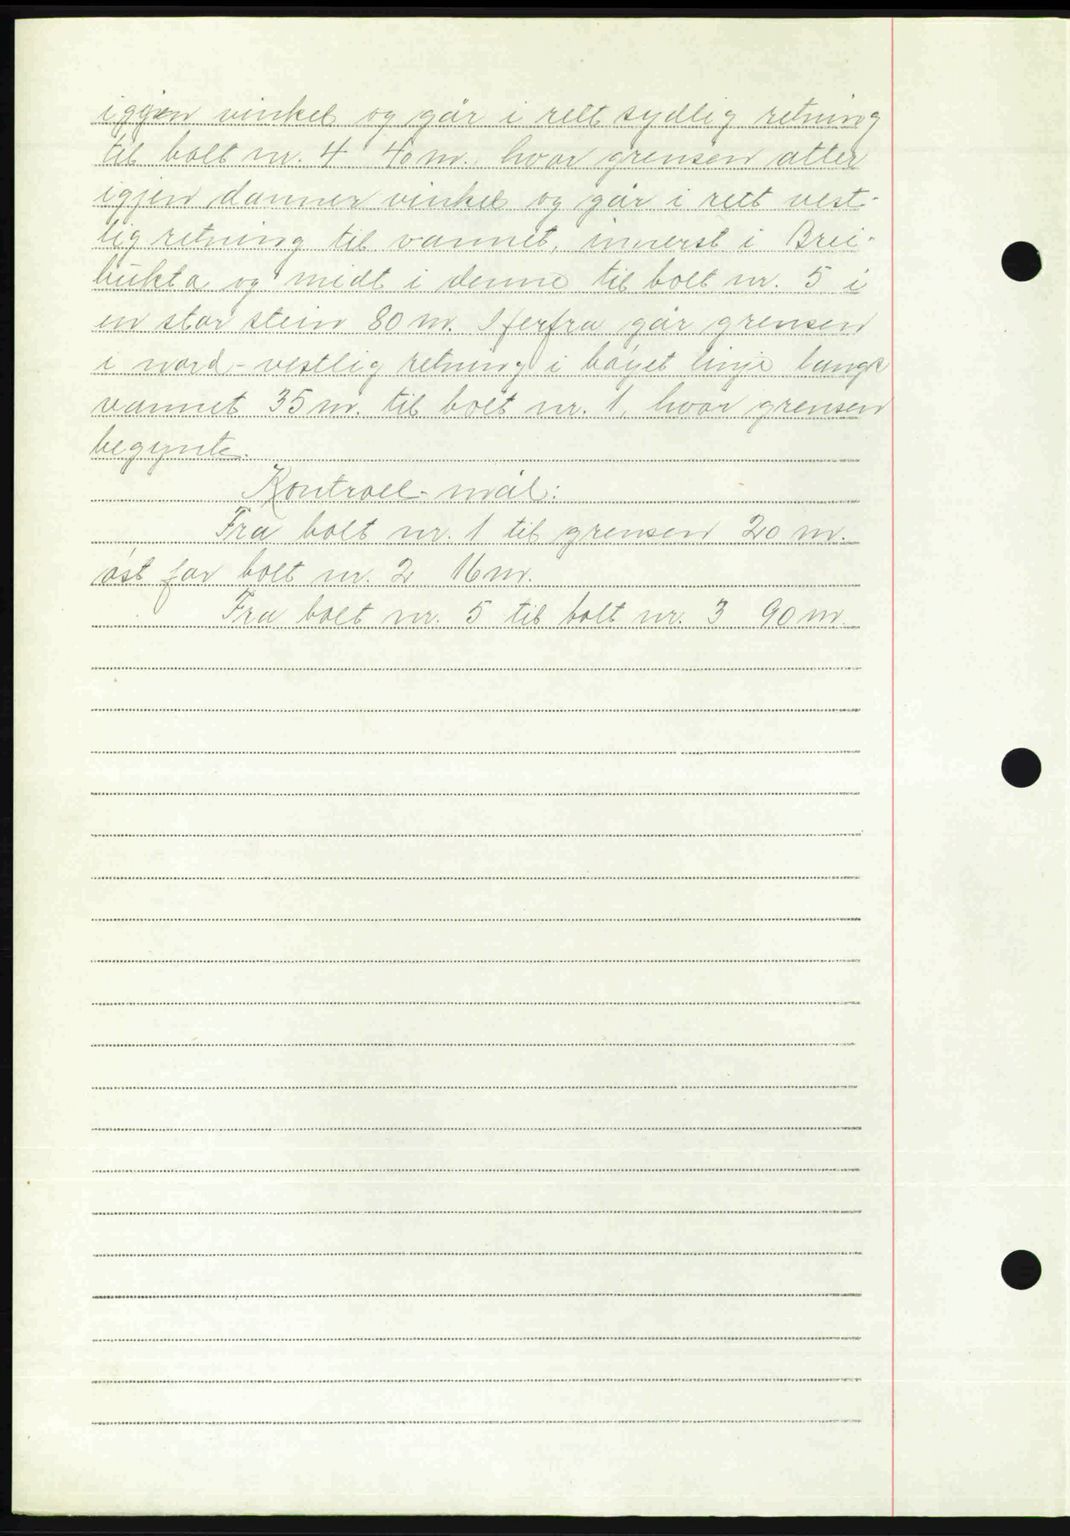 igjen vinkel og går i rett sydlig retning
til bolt nr. 4 40 m. hvor grensen atter
igjen danner vinkel og går i rett vest-
lig retning til vannet, innerst i Brei-
bukta og midt i denne til bolt nr. 5 i
en stor stein 80 m. Herfra går grensen
i nord-vestlig retning i bøyet linje langs
vannet 35 m. til bolt nr. 1, hvor grensen
begynte.
Kontroll-mål:
Fra bolt nr. 1 til grensen 20 m.
øst for bolt nr. 2 16 m.
Fra bolt nr. 5 til bolt nr. 3 90 m.